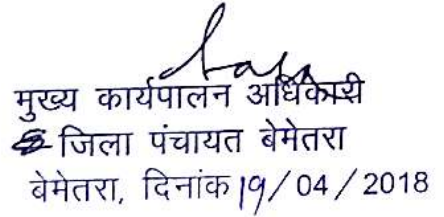 मुख्य कार्यपालन अधिकारी
जिला पंचायत बेमेतरा
बेमेतरा, दिनांक 19/04/2018